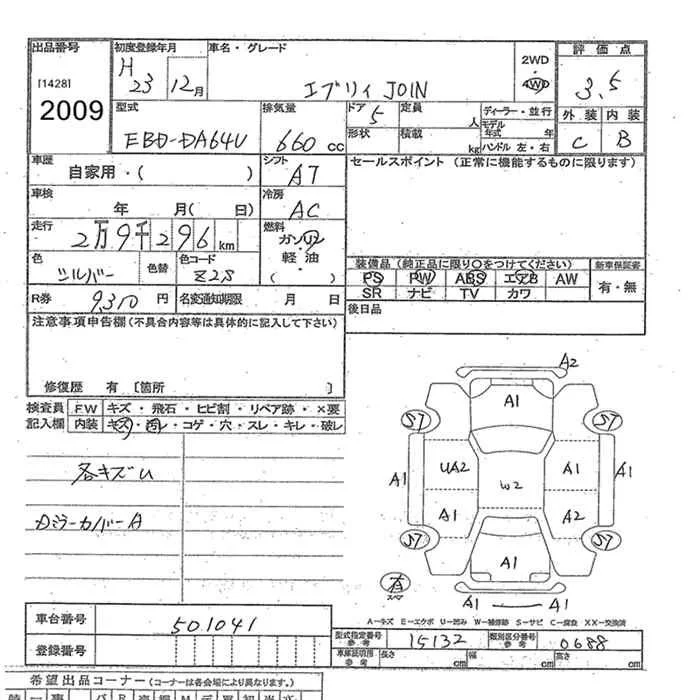 出品番号 初度登録年月 車名・グレード 評価点
[1428] H 23 12月 エブリィ JOIN 2WD・4WD 3.5
2009 型式 排気量 ドア 定員 ディーラー・並行 外装 内装
EBD-DA64V 660cc 5 人 モデル年式 年 C B
形状 積載 kg ハンドル 左・右
車歴 自家用・( ) シフト AT セールスポイント (正常に機能するものに限ります)
車検 年 月( 日) 冷房 AC
走行 2万9千296km 燃料 ガソリン・軽油・( )
色 シルバー 色替 色コード Z2S
装備品(純正品に限り○をつけてください) 新車保証書
PS PW ABS エアB AW 有・無
SR ナビ TV カワ
R券 9310円 名変通知期限 月 日 後日品
注意事項申告欄(不具合内容等は具体的に記入して下さい)
修復歴 有 [箇所 ]
検査員 FW キズ・飛石・ヒビ割・リペア跡・×要
記入欄 内装 キズ・汚レ・コゲ・穴・スレ・キレ・破レ
各キズU
DミラーカバーA
A2
A1
S7 S7
A1 UA2 W2 A1 A1
A1 A2
S7 S7
A1
有 スペア
A1 — A1
A-キズ E-エクボ U-凹み W-補修跡 S-サビ C-腐食 XX-交換済
車台番号 501041
登録番号
型式指定番号 参考 15132 類別区分番号 参考 0688
車庫証明用 参考 長さ cm 幅 cm 高さ cm
希望出品コーナー (コーナーは各会場により異なります。)